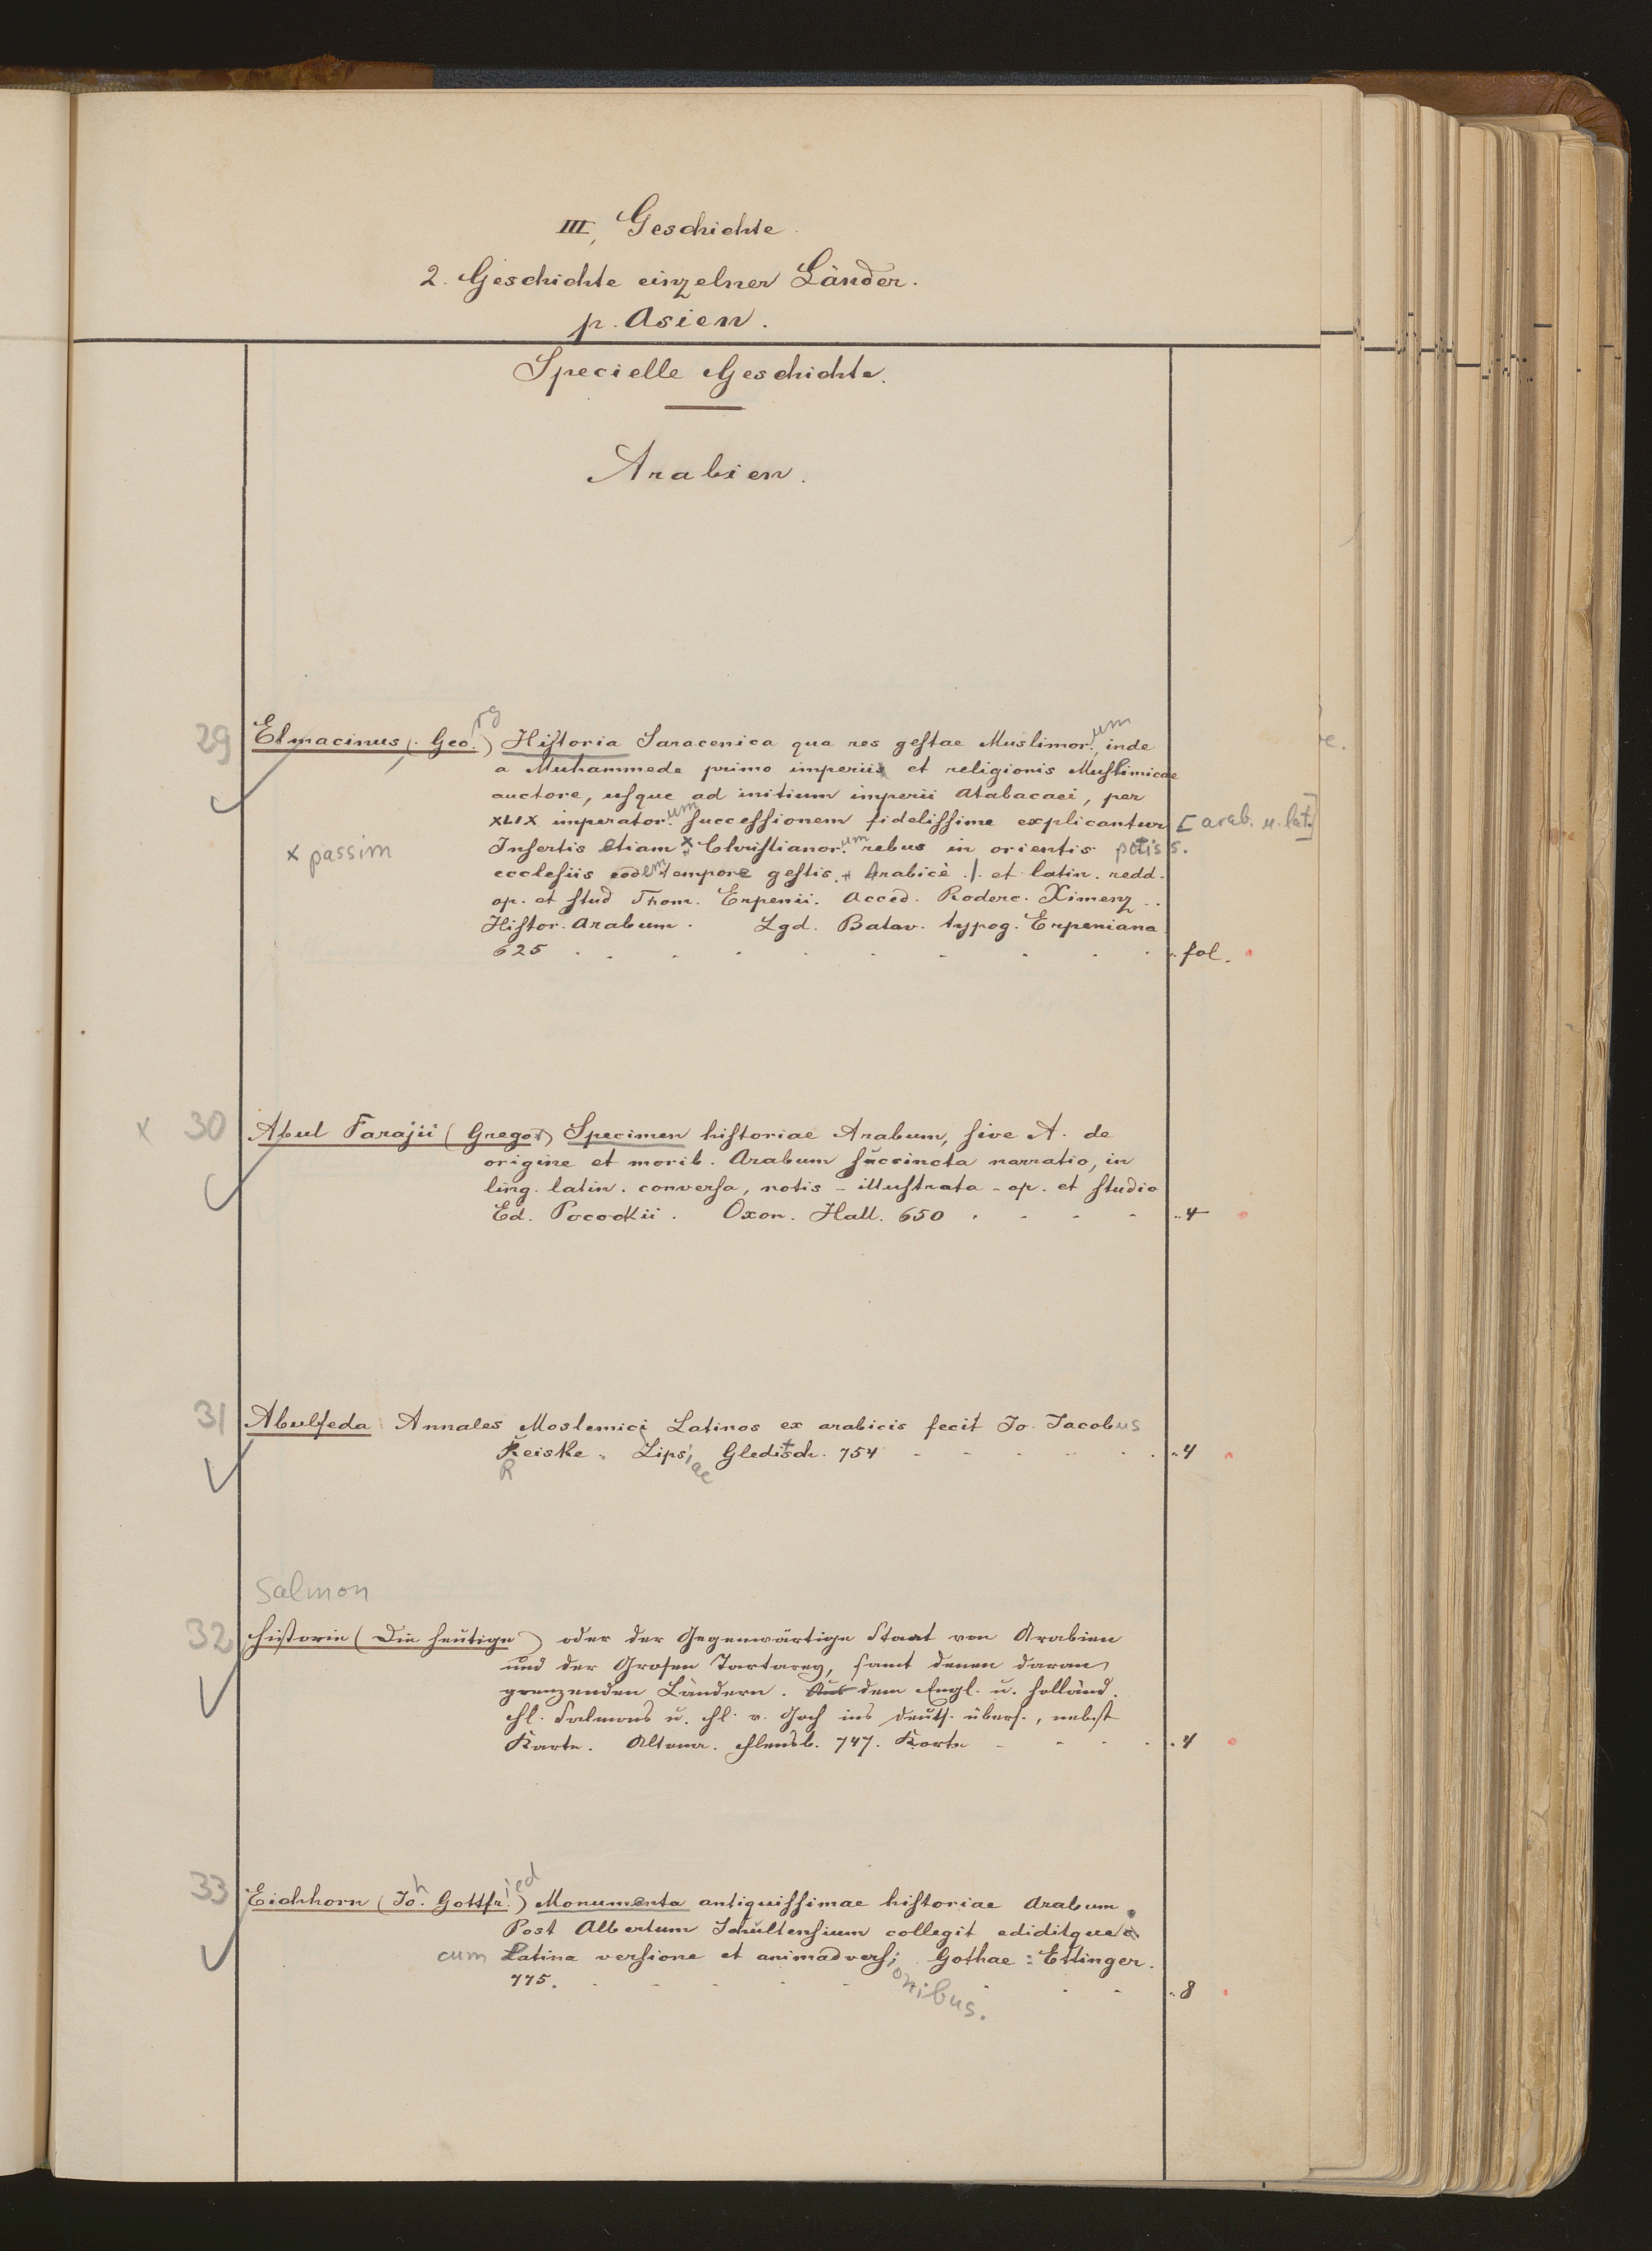 III, Geschichte.
2. Geschichte einzelner Länder.
p. Asien.
Specielle Geschichte.
Arabien.
29 Elmacinus (Geo.rg) Historia Saracenica qua res gestae Muslimor.um, inde
a Muhammede primo imperii et religionis Muslimicae
auctore, usque ad initium imperii Atabacaei, per
XLIX imperator.um successionem fidelissime explicantur [arab. u. lat.]
x passim Insertis etiam x Christianor.um rebus in orientis potiss.
ecclesiis eodem tempore gestis. + Arabicè ./. et latin. redd.
op. et stud Thom. Erpenii. Acced. Roderc. Ximenz..
Histor. Arabum. Lgd. Batav. typog. Erpeniana
625 . . . . . . . . . fol.
x 30 Abul Farajii (Gregor) Specimen historiae Arabum, sive A. de
origine et morib. Arabum succincta narratio, in
ling. latin. conversa, notis - illustrata - op. et studio
Ed. Pocockii. Oxon. Hall. 650 . . . . 4
31 Abulfeda Annales Moslemici Latinos ex arabicis fecit Jo. Jacobus
Reiske. Lipsiae Gleditsch. 754 - - - . . 4
R
Salmon
32 Historie (Die heutige) oder der Gegenwärtige Staat von Arabien
und der Grosen Tartarey, samt denen daran
grenzenden Ländern. Aus dem Engl. u. Holländ.
H. Salmons u. H. v. Goch ins Deuts. übers., nebst
Karte. Altona. Flensb. 747. Korte - - . . 4
33 Eichhorn (Joh. Gottfried) Monumenta antiquissimae historiae Arabum.
Post Albertum Schultensium collegit ediditque
cum Latina versione et animadversionibus. Gothae: Ettinger.
775. . . . . . . . 8